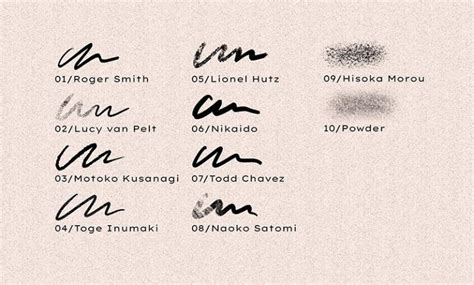 01/Roger Smith
02/Lucy van Pelt
03/Motoko Kusanagi
04/Toge Inumaki
05/Lionel Hutz
06/Nikaido
07/Todd Chavez
08/Naoko Satomi
09/Hisoka Morou
10/Powder